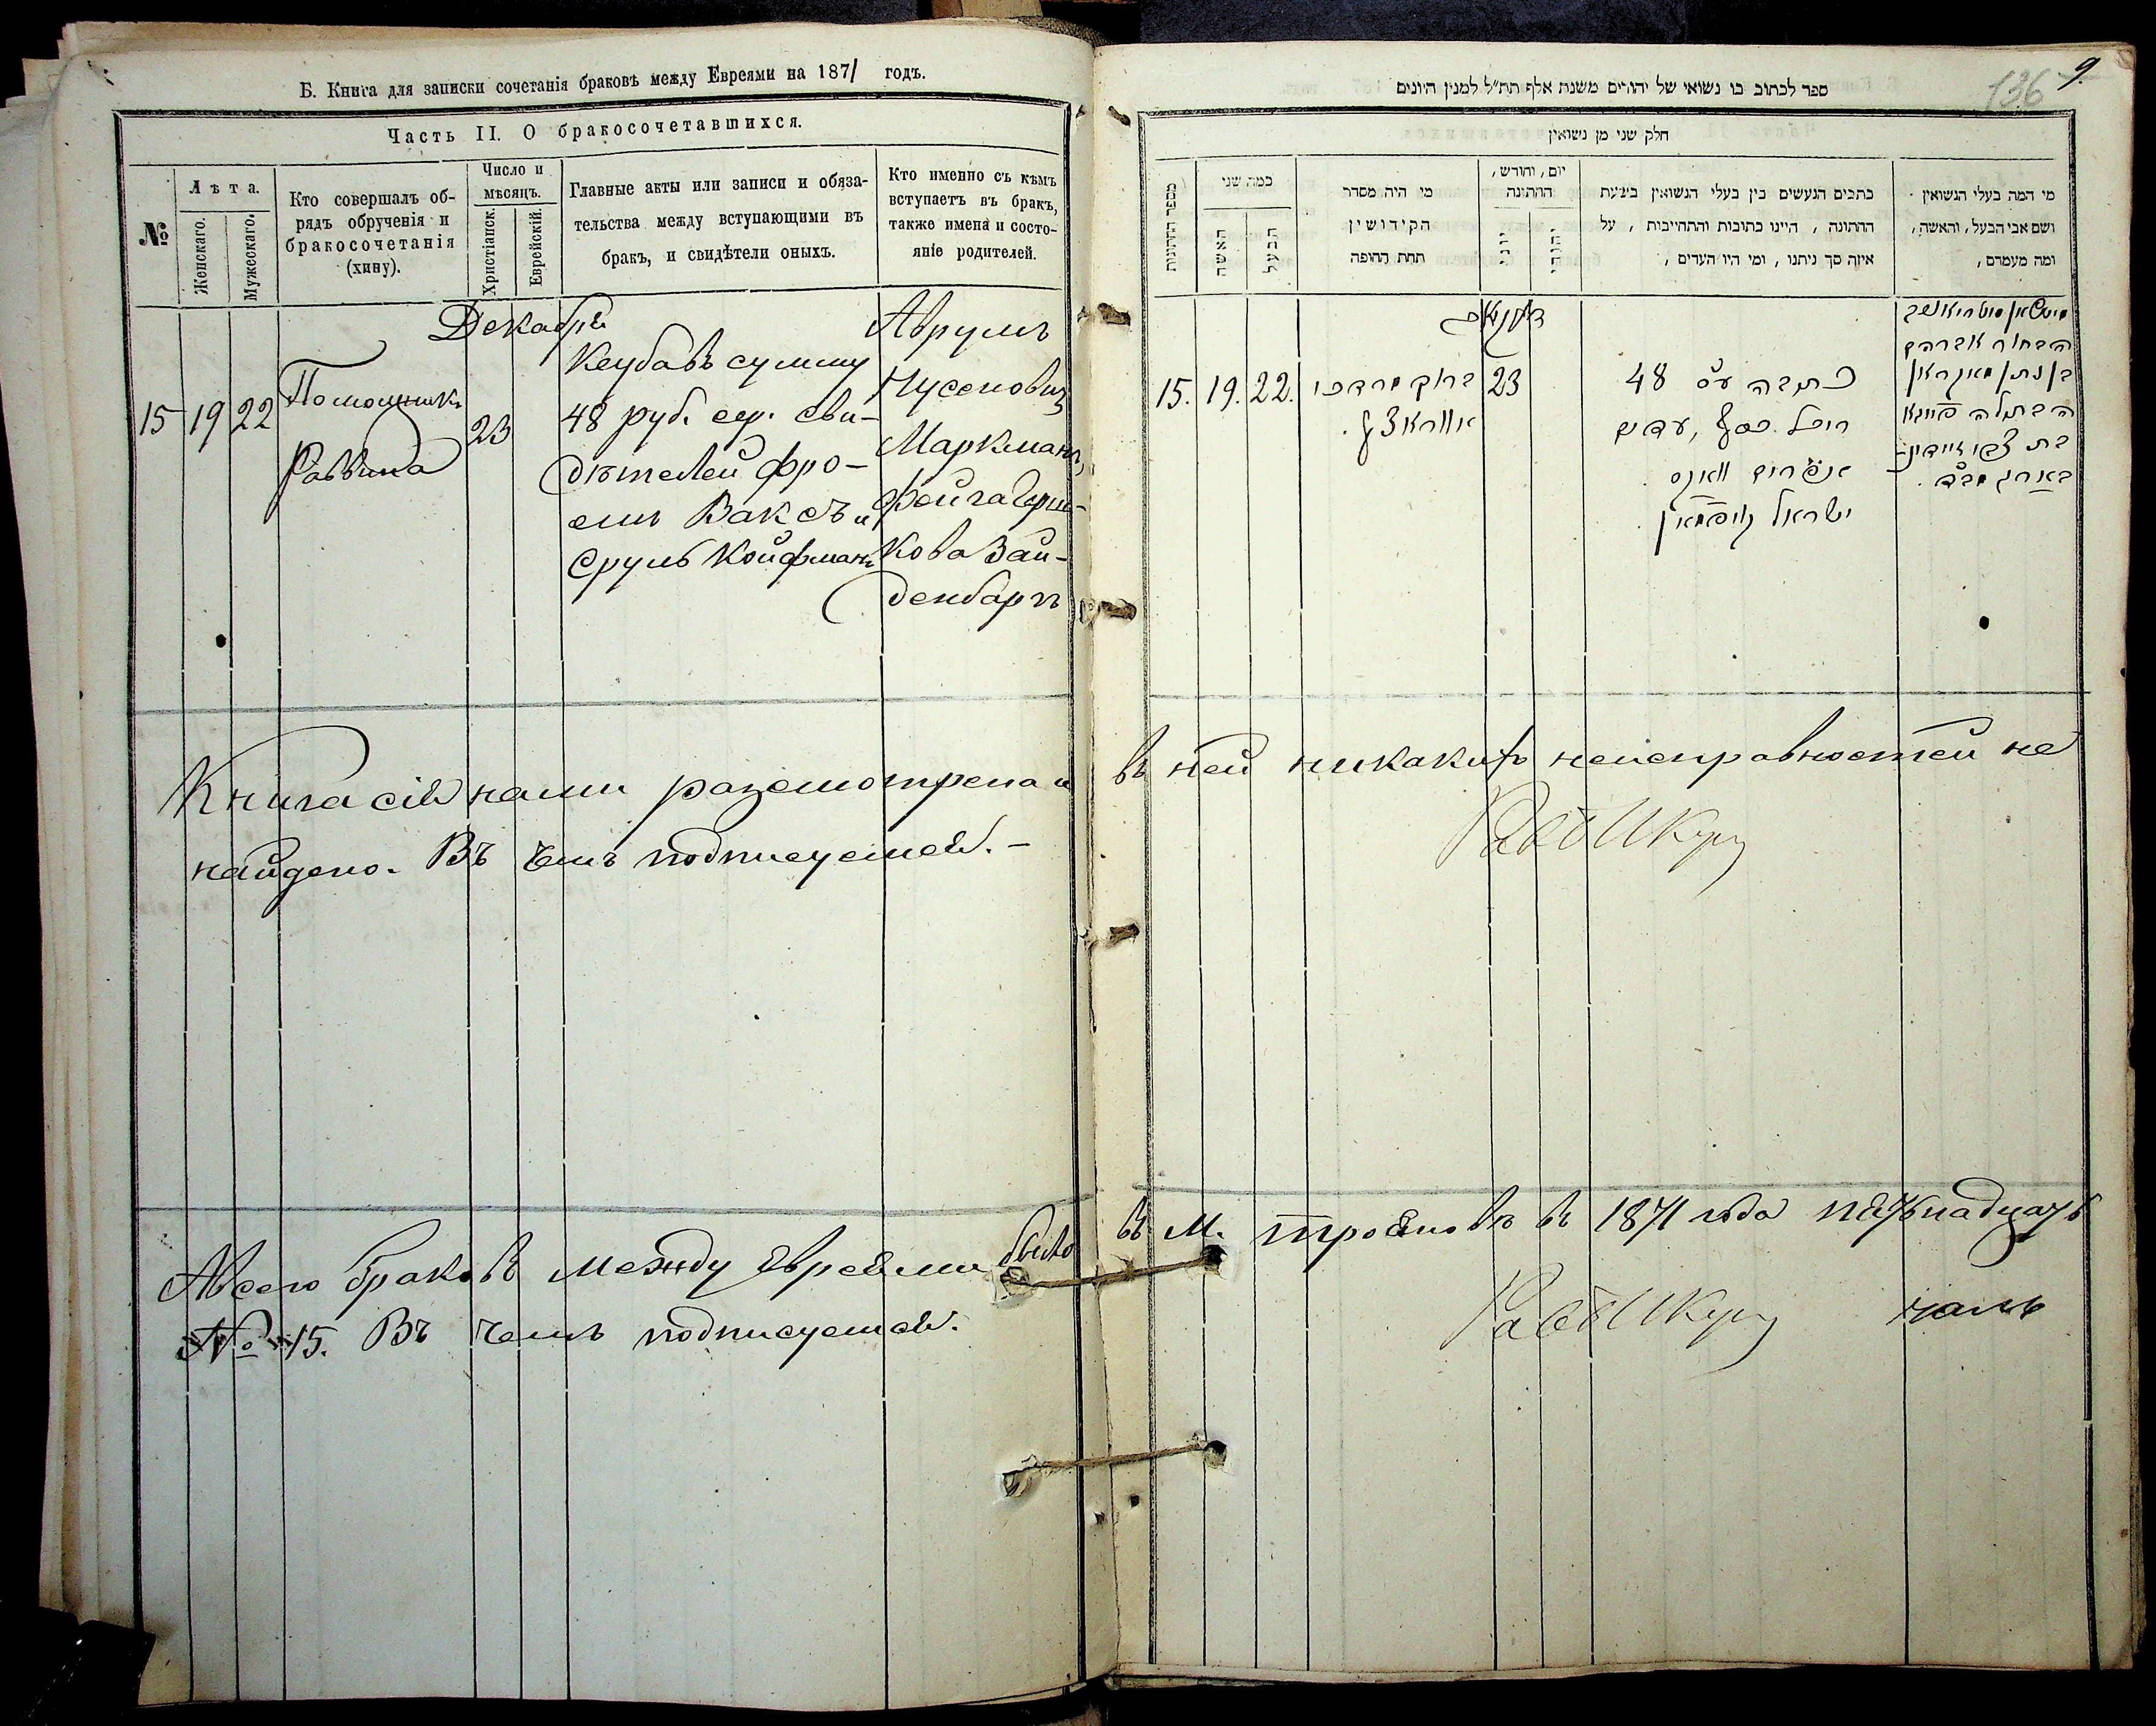 Б. Книга для записки сочетанія браковъ между Евреями на 1871 годъ.
Часть II. О бракосочетавшихся.
№
Лѣта.
Женскаго.
Мужескаго.
Кто совершалъ об-
рядъ обрученія и
бракосочетанія
(хипу).
Число и
мѣсяцъ.
Христіанск.
Еврейскій.
Главные акты или записи и обяза-
тельства между вступающими въ
бракъ, и свидѣтели оныхъ.
Кто именно съ кѣмъ
вступаетъ въ бракъ,
также имена и состо-
яніе родителей.
Декабря
15
19
22
Помощникъ
Раввина
23
Кеуба въ сумму
48 руб. сер. сви-
дѣтелей Фро-
емъ Ваксъ и
Сруль Койфманъ
Аврумъ
Нусеновичъ
Маркманъ,
Фейга Герш-
кова Зай-
денбаргъ
Книга сія нами разсмотрена и въ ней никакихъ неисправностей не
найдено. Въ чемъ подписуемся. -
Всего браковъ между Евреями было въ М. Трояновѣ въ 1871 года пятьнадцать
№ 15. Въ чемъ подписуемся.
136
9.
ספר לכתוב בו נשואי של יהודים משנת אלף תת״ל למנין היונים
חלק שני מן נשואין
מספר החתונות
כמה שני
האשה
הבעל
מי היה מסדר
הקידושין
תחת החופה
יום, וחודש,
החתונה
יוני
יהודי
כתבים הנעשים בין בעלי הנשואין בשעת
החתונה, היינו כתובות והתחייבות, על
איזה סך ניתנו, ומי היו העדים,
מי המה בעלי הנשואין
ושם אבי הבעל, והאשה,
ומה מעמדם,
15.
19.
22.
ברוך מרדכי
23
כתובה ע״ס 48
רובל כסף, עדים
אפרים וואקס
ישראל קויפמאן.
הבחור אברהם
בן נתן מארקמאן
הבתולה פייגא
בת צבי זיידין-
בארג